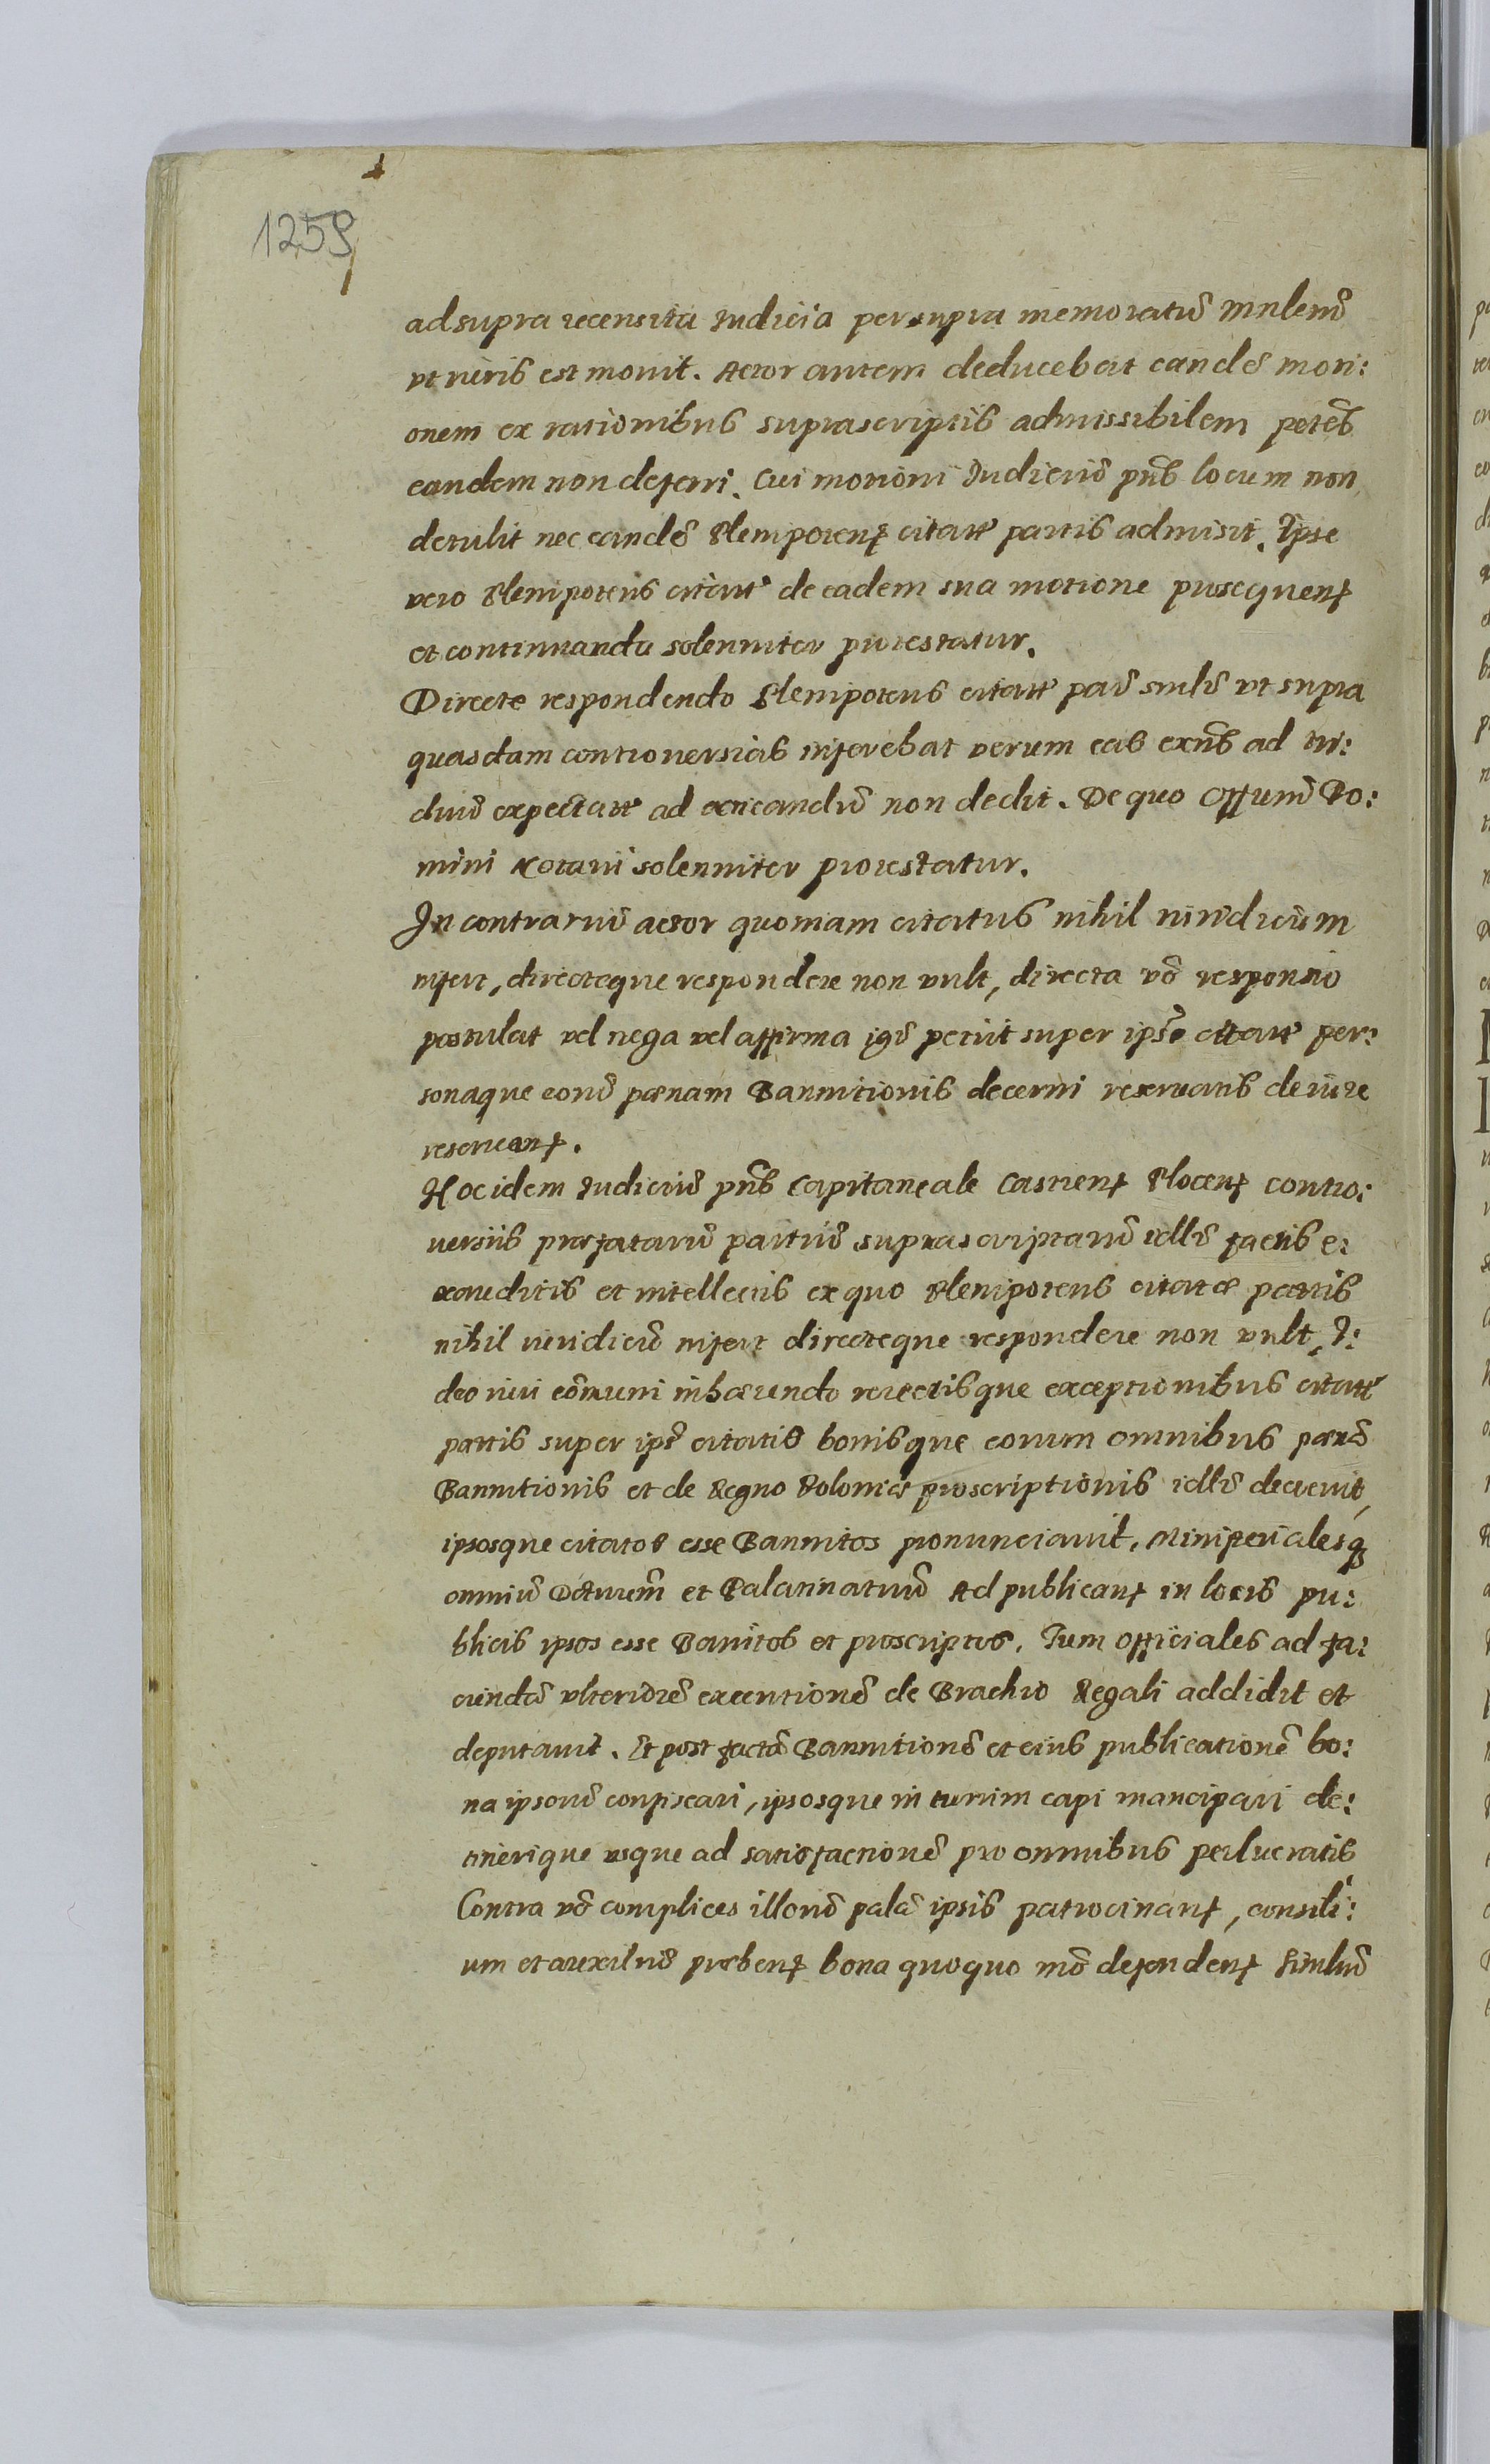 1259
ad supra recensita Iudicia per supra memoratū Mnlem̄
vt iuris est monit. Actor autem deducebat eandē moti:
onem ex rationibus suprascriptis admissibilem petēs
eandem non deferri. Cui motioni Iudiciū pn̄s locum non
detulit nec eandē Plenipotenꝭ citatæ partis admisit. Ipse
vero Plenipotens citatæ de eadem sua motione prosequenꝭ
et continuanda solenniter protestatur.
Directe respondendo Plenipotens citatæ par̄ smlr̄ vt supra
quasdam controversias inferebat verum eas exn̄s ad in:
duciā expectatæ ad exticandū non dedit. De quo Offium̄ Do:
mini Notarii solenniter protestatur.
In contrariū actor quoniam citatus nihil iuridicum
infert, directeque respondere non vult, directa vō responsio
postulat vel nega vel affirma igr̄ petiit super ipsō citatæ per:
sonaque eorū pœnam Bannitionis decerni reservatis de iure
reservanꝭ.
Hoc idem Iudiciū pn̄s Capitaneale Castrenꝭ Plocenꝭ contro:
versiis præfatarū partiū suprascriptarū idlr̄ factis e:
xauditis et intellectis ex quo Plenipotens citatæ partis
nihil iuridicū infert directeque respondere non vult, I:
deo iuri cōmuni inhærendo reiectisque exceptionibus citatæ
partis super ipsr̄ citatis bonisque eorum omnibus pœnā
Bannitionis et de Regno Poloniæ proscriptionis idlr̄ decrevit,
ipsosque citatos esse Bannitos pronunciavit. Ministerialesq̃
omniū Dcturem̄ et Palatinatuū Ad publicanꝭ in locis pu:
blicis ipsos esse Banitos et proscriptos. Tum officiales ad fa:
ciendā vlteriorē executionē de Brachio Regali addidit et
deputavit. Et post factā Bannitionē et eius publicationē bo:
na ipsorū confiscari, ipsosque in turrim capi mancipari de:
tinerique vsque ad satisfactionē pro omnibus perlucratis
Contra vō complices illorū palā ipsis patrocinanꝭ, consili:
um et auxiliū præbenꝭ bona quoquo mō defendenꝭ similiū